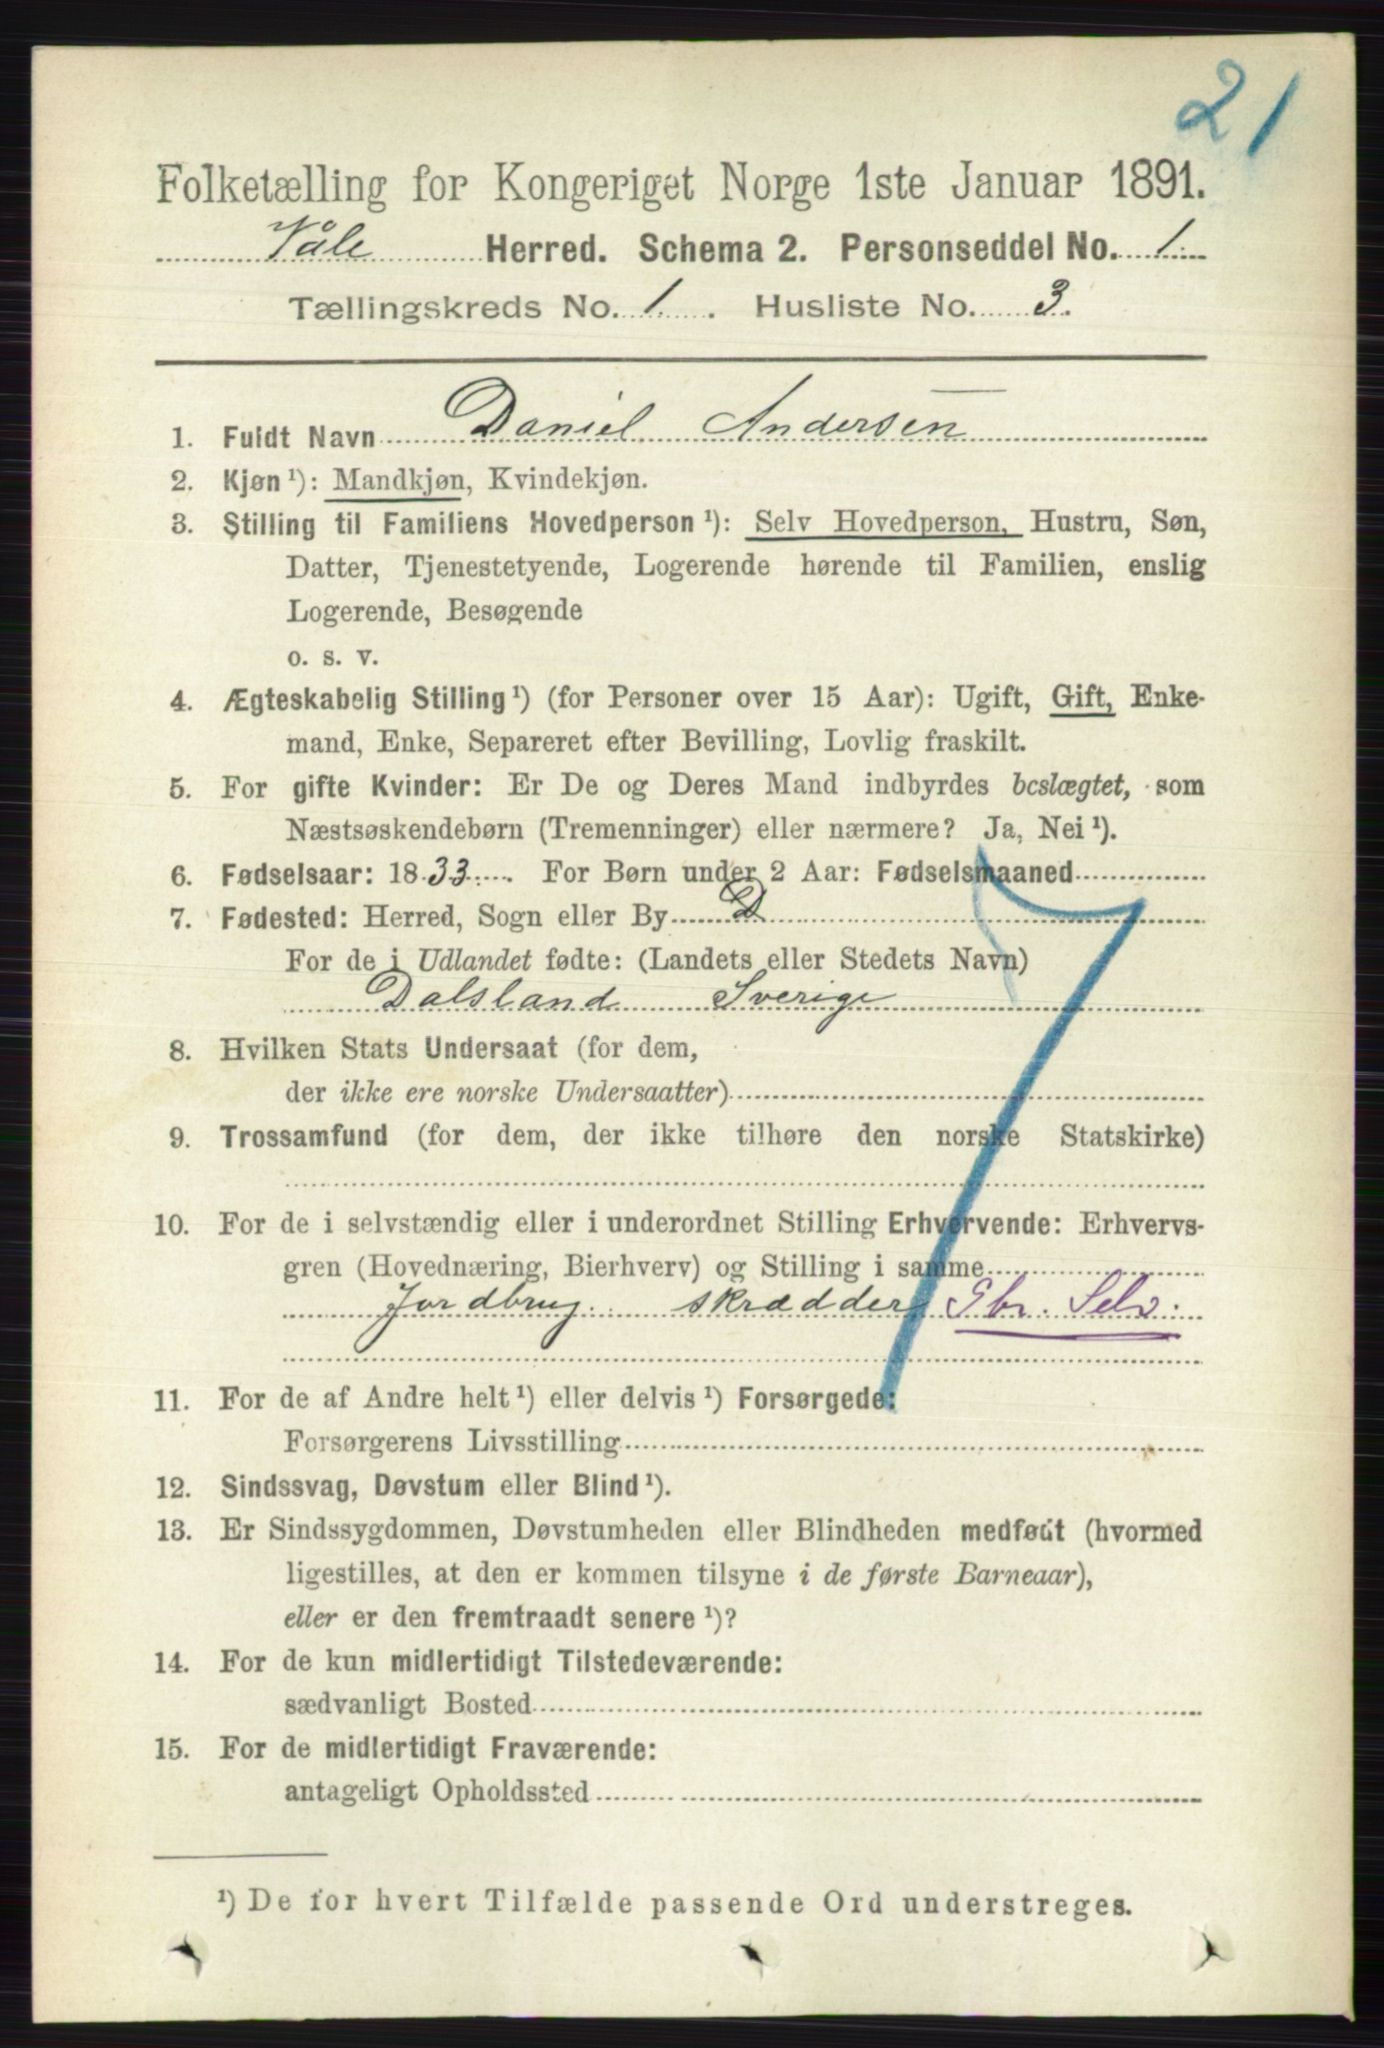 21
Folketælling for Kongeriget Norge 1ste Januar 1891.
Våle Herred. Schema 2. Personseddel No. 1.
Tællingskreds No. 1. Husliste No. 3.
1. Fuldt Navn Daniel Andersen
2. Kjøn ¹): Mandkjøn, Kvindekjøn.
3. Stilling til Familiens Hovedperson ¹): Selv Hovedperson, Hustru, Søn,
Datter, Tjenestetyende, Logerende hørende til Familien, enslig
Logerende, Besøgende
o. s. v.
4. Ægteskabelig Stilling ¹) (for Personer over 15 Aar): Ugift, Gift, Enke-
mand, Enke, Separeret efter Bevilling, Lovlig fraskilt.
5. For gifte Kvinder: Er De og Deres Mand indbyrdes beslægtet, som
Næstsøskendebørn (Tremenninger) eller nærmere? Ja, Nei ¹).
6. Fødselsaar: 1833. For Børn under 2 Aar: Fødselsmaaned
7. Fødested: Herred, Sogn eller By D
For de i Udlandet fødte: (Landets eller Stedets Navn)
Dalsland Sverige
8. Hvilken Stats Undersaat (for dem,
der ikke ere norske Undersaatter)
9. Trossamfund (for dem, der ikke tilhøre den norske Statskirke)
10. For de i selvstændig eller i underordnet Stilling Erhvervende: Erhvervs-
gren (Hovednæring, Bierhverv) og Stilling i samme
Jordbrug skrædder Gbr. Selv.
11. For de af Andre helt ¹) eller delvis ¹) Forsørgede:
Forsørgerens Livsstilling
12. Sindssvag, Døvstum eller Blind ¹).
13. Er Sindssygdommen, Døvstumheden eller Blindheden medfødt (hvormed
ligestilles, at den er kommen tilsyne i de første Barneaar),
eller er den fremtraadt senere ¹)?
14. For de kun midlertidigt Tilstedeværende:
sædvanligt Bosted
15. For de midlertidigt Fraværende:
antageligt Opholdssted
¹) De for hvert Tilfælde passende Ord understreges.